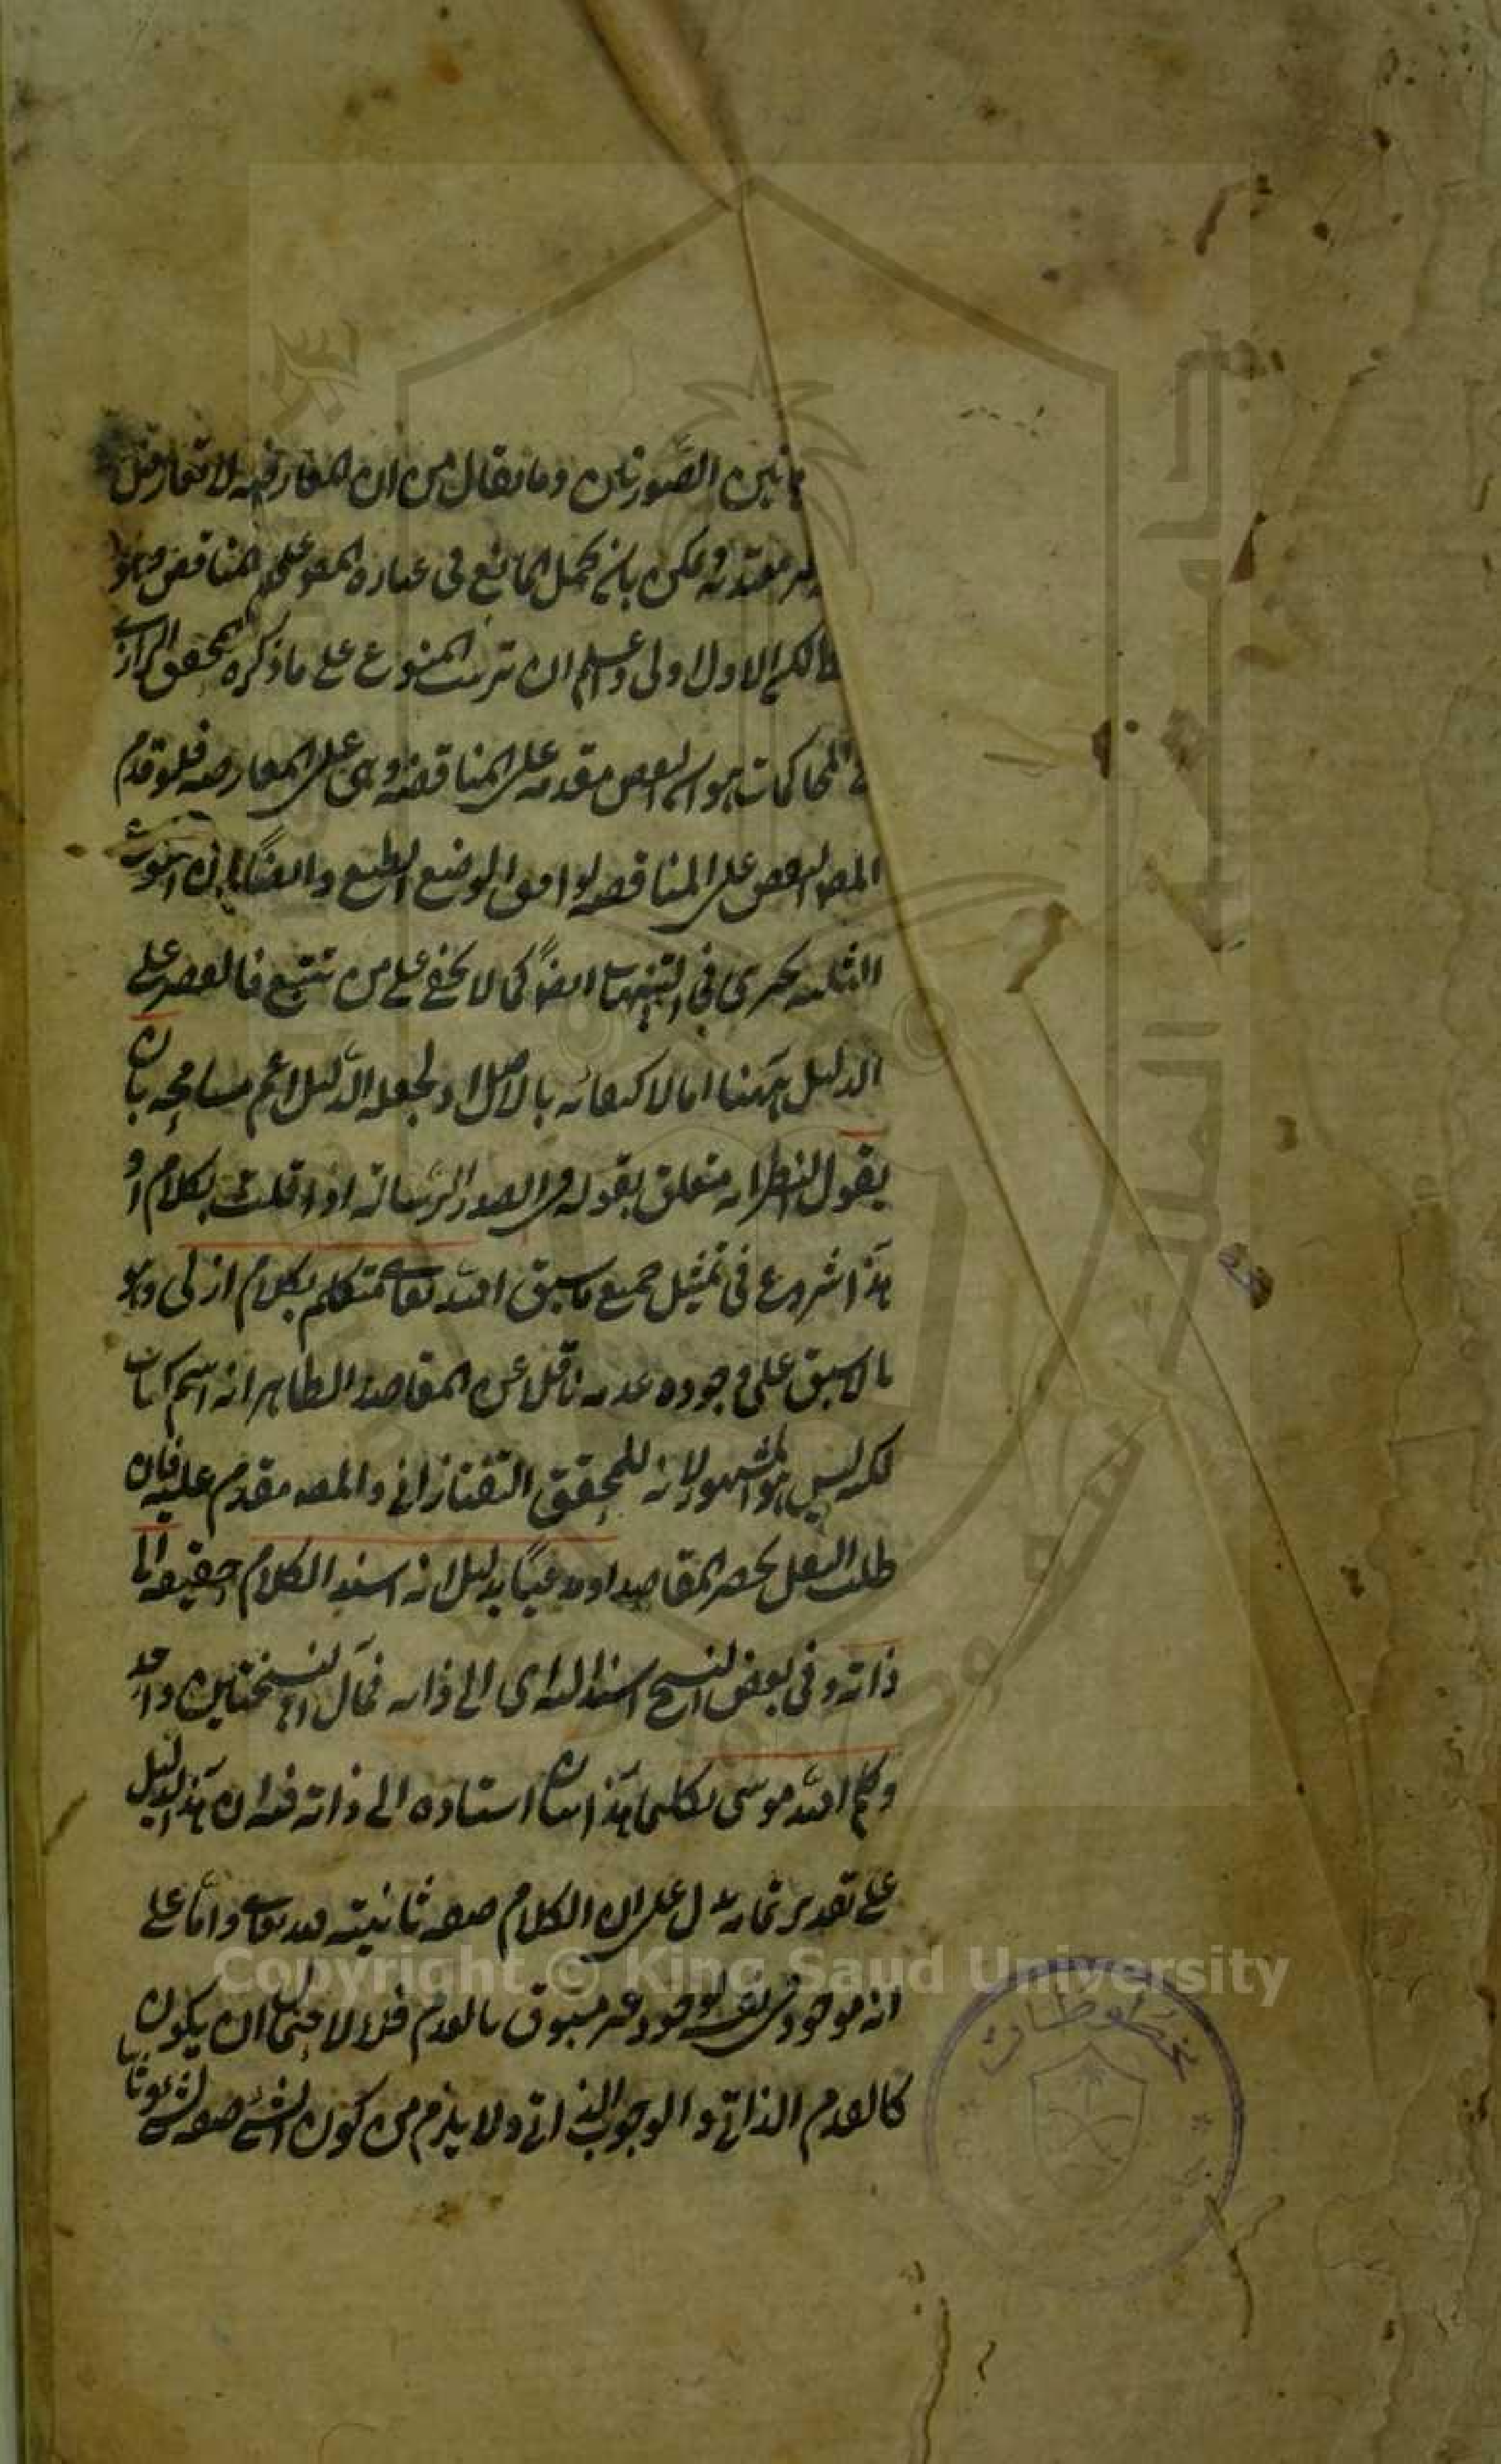 هاتين الصورتين وما يقال من ان المعارضة لا تعارض
معتد به ويمكن بان يحمل المانع في عبارة المصـ على المناقض وهو
الاول اولى واعلم ان ترتيب المنوع على ما ذكره المحقق الرازي
المحاكمات هو ان النقض مقدمة على المناقضة وهي على المعارضة فلو قدم
المصـ النقض على المناقضة لوافق الوضع الطبع وايضا ان المنوع
الثلثة يجرى في التنبيهات ايضاً كما لا يخفى على من تتبع فالقصر على
الدليل ههنا اما لاكتفائه بالاصل او لجعله الدليل اعم مسامحة بان
يقول النظر انه متعلق بقوله في صدر الرسالة اذا قلت بكلام او
هذا شروع في تمثيل جميع ما سبق الله تعالى متكلم بكلام ازلي وهو
ما لا سبق على وجوده عدمه ناقل عن المقاصد الظاهر انه اسم كتاب
لكنه ليس هو المشهور لانه للمحقق التفتازاني والمصـ مقدم عليه فان
طلب النقل يحضر المقاصد او مدعيا بدليل انه اسند الكلام حقيقة الى
ذاته وفي بعض النسخ اسند اليه اى الى ذاته فمآل النسختين واحد
وكلم الله موسى تكليما هذا اسناده الى ذاته فيه ان هذا الدليل
على تقدير تمامه يدل على ان الكلام صفة ثابتة لله تعالى واما على
انه موجود في نفسه بوجود غير مسبوق بالعدم فلا لاحتمال ان يكون
كالقدم الذاتي والوجوب الذاتي ولا يلزم من كون الشئ صفة لشئ ثبوتا
Copyright © King Saud University
جامعة الملك سعود
مخطوطات